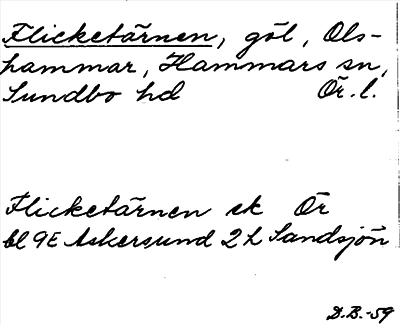 Flicketärnen, göl, Ols-
hammar, Hammars sn,
Sundbo hd Ör. l.
Flicketärnen ek Ör
bl 9E Askersund 2 h Sandsjön
D.B.-59